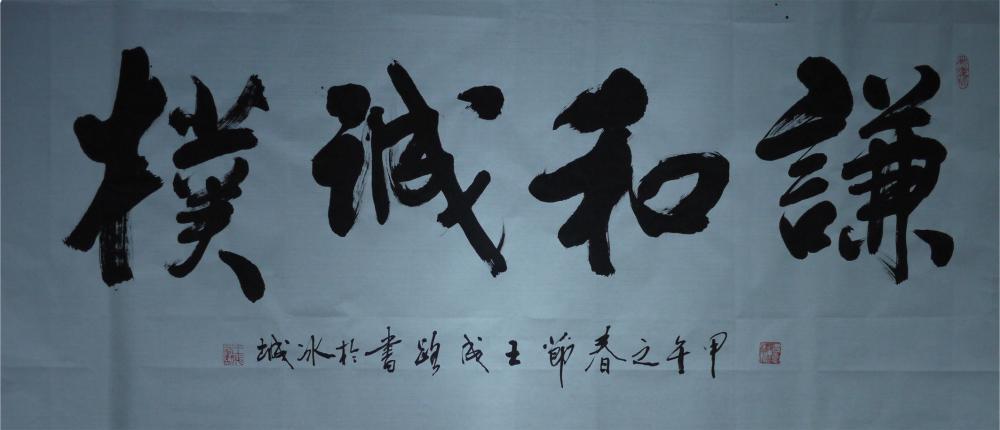 謙和誠樸
甲午之春節王成路書於冰城